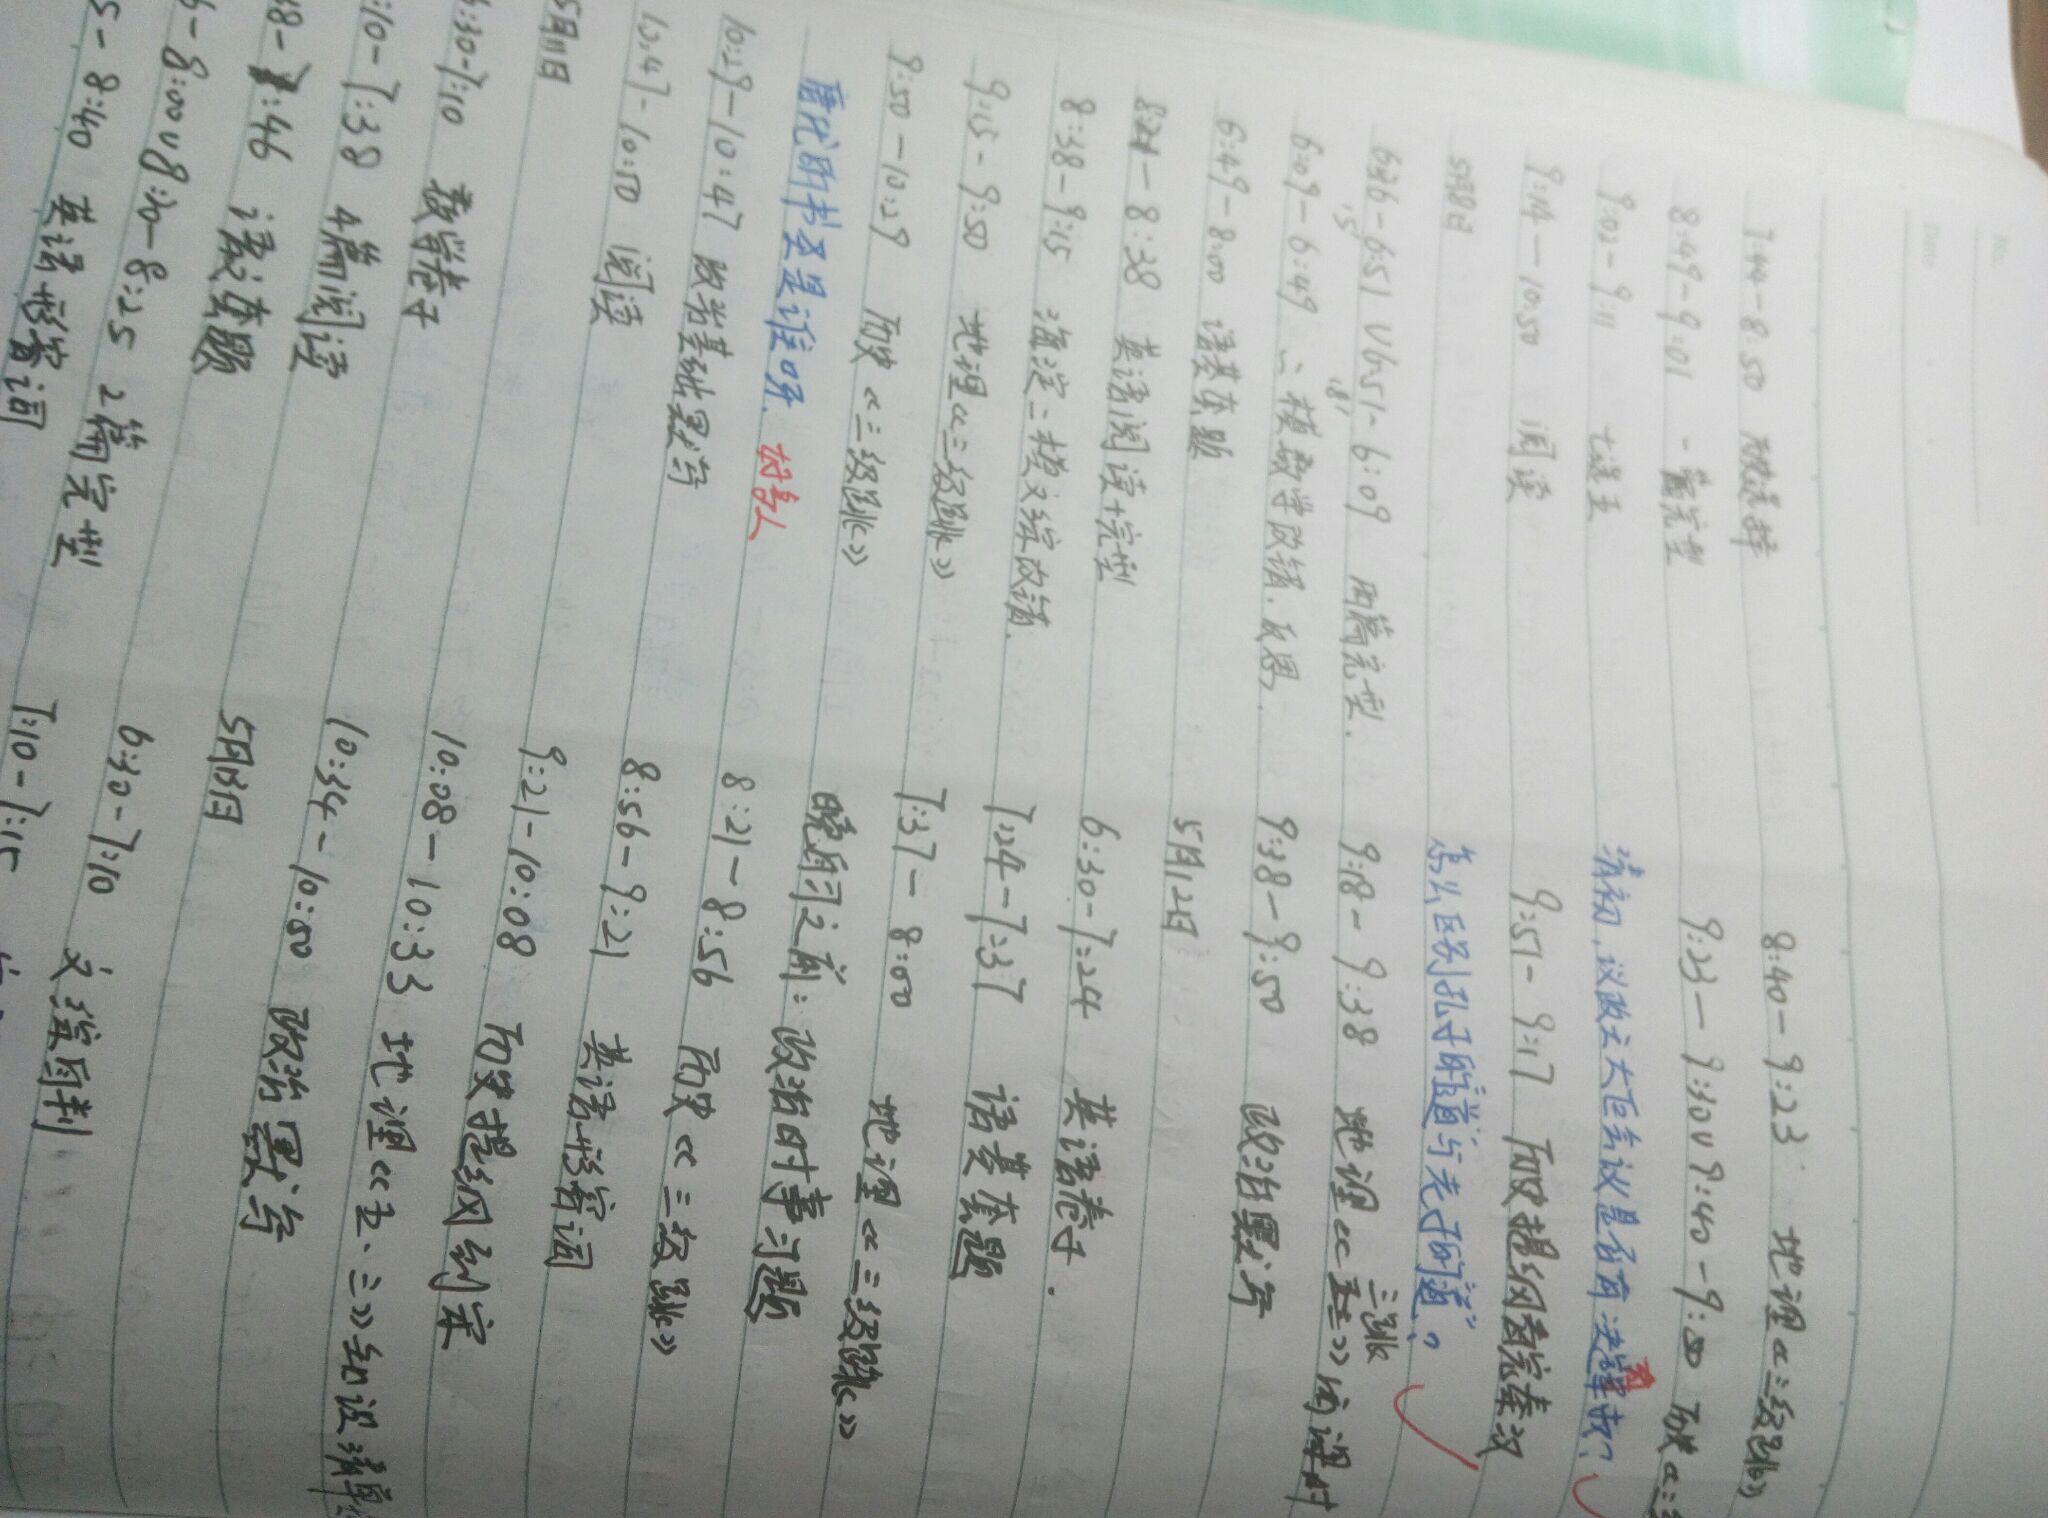 No.
Date
7:44-8:50 历史选择
8:49-9:01 一篇完型
9:02-9:11 七选五
9:14-10:50 阅读
5月8日
6:36-6:51 ∪ 6:51-6:09 两篇完型.
6:09-6:49 二模数学改错.反思.
6:49-8:00 语基夯题
8:21-8:38 英语阅读+完型
8:38-9:15 海淀二模文综改错.
9:15-9:50 地理《三级跳》
9:50-10:29 历史《三级跳》
唐代的书圣是谁呀. 故善人
10:29-10:47 政治基础默写
10:47-10:50 阅读
5月11日
6:30-7:10 数学卷子
:10-7:38 4篇阅读
:46 语夯题
-8:00∪8:20-8:25 2篇完型
5-8:40 英语形容词
8:40-9:23 地理《三级跳》
9:23-9:30∪9:40-9:50 历史《三
清初,议政王大臣会议是否有决策权?
9:51-9:17 历史提纲看完秦汉
怎么区别孔子的"道"与老子的"道"。
三跳
9:18-9:38 地理《五三》 课时
9:38-9:50 政治默写
5月12日
6:30-7:24 英语卷子.
7:24-7:37 语基夯题
7:37-8:00 地理《三级跳》
晚自习之前:政治时事习题
8:21-8:56 历史《三级跳》
8:56-9:21 英语形容词
9:21-10:08 历史提纲到宋
10:08-10:33 地理《五·三》知识清单
10:34-10:50 政治默写
5月13日
6:30-7:10 文综自判
7:10-7:15